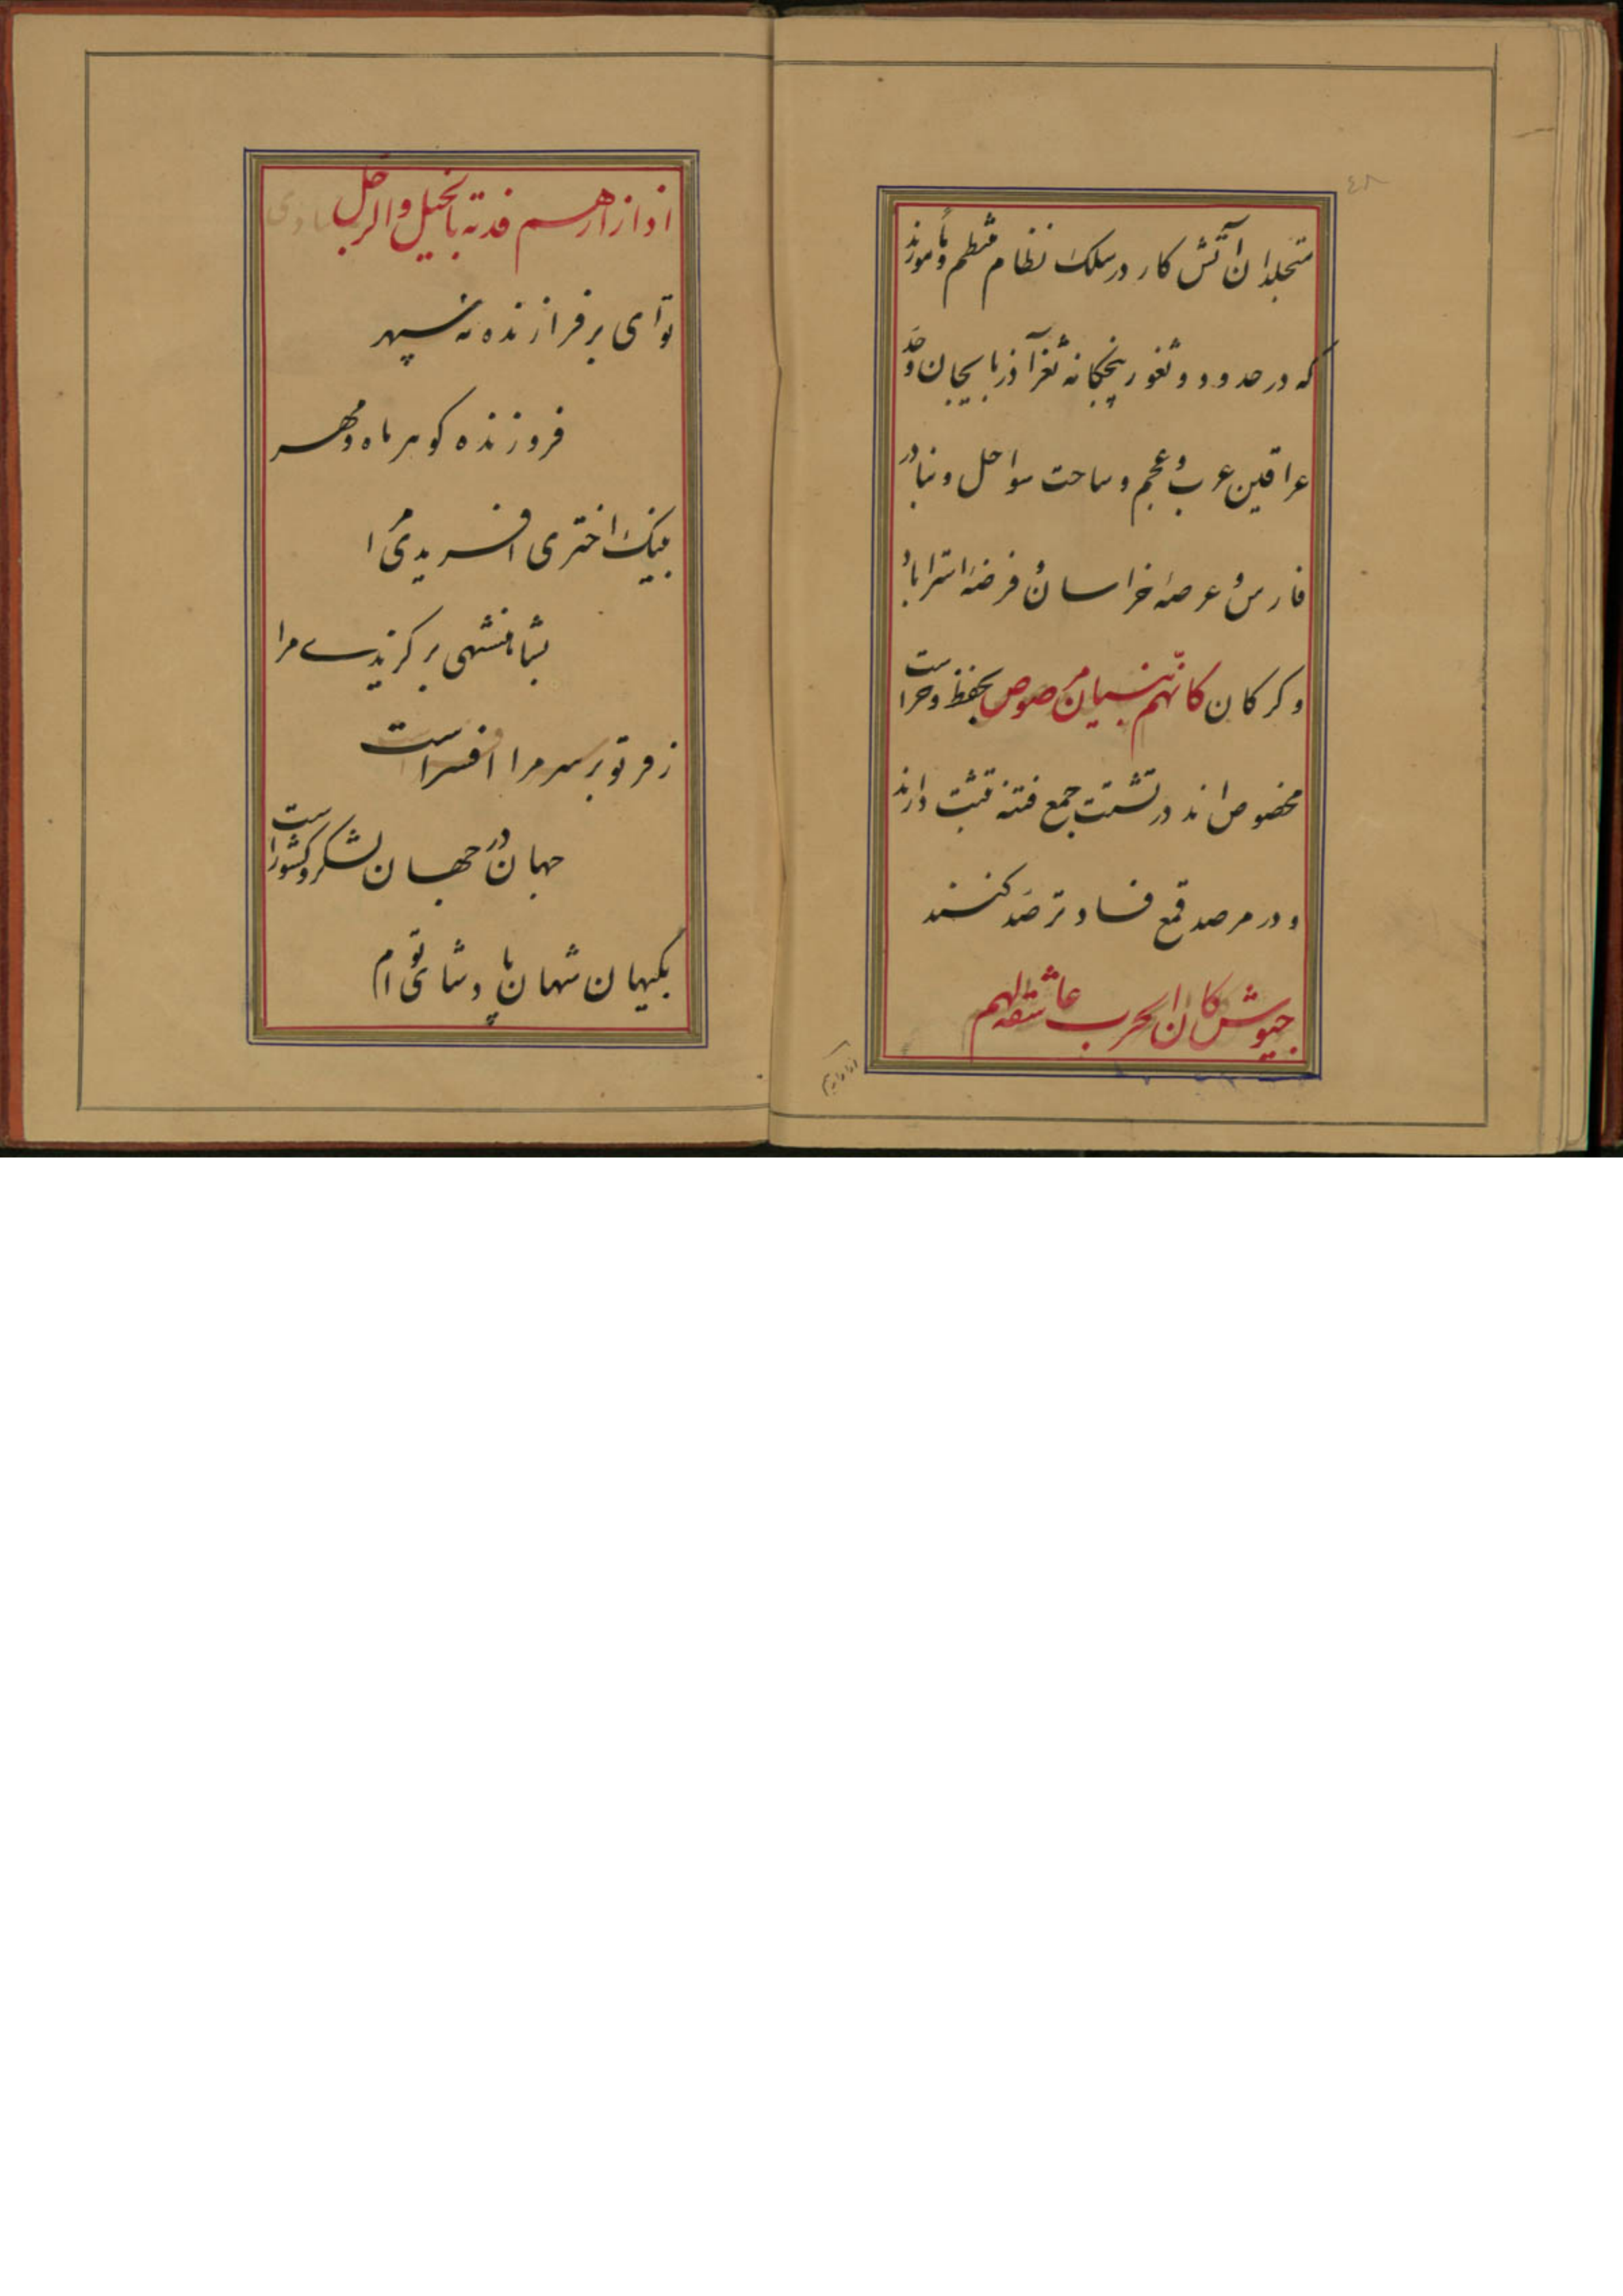 ٤٨
متجلدان آتش کار در سلک نظام منتظم و مأمورند
که در حدود و ثغور پنجکانه ثغر آذربایجان و حد
عراقین عرب و عجم و ساحت سواحل و بنادر
فارس و عرصهٔ خراسان و فرضهٔ استراباد
و کرکان کانّهم بنیان مرصوص بحفظ و حراست
مخصوص اند در تشتت جمع فتنه تثبت دارند
و در مرصد قمع فساد ترصّد کنند
جیوش کان الحرب عاشقة لهم
اذا زارهم فدته بالخیل والرجل
توآی برفرازنده نه سپهر
فروزنده کوهر ماه و مهر
بنیک اختری افریدی مرا
بشاهنشهی برکزیدی مرا
ز فر تو بر سر مرا افسر است
جهان در جهان لشکر و کشور است
بکیهان شهان پادشای توام